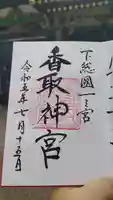 下総国一之宮
香取神宮
令和五年七月十五日